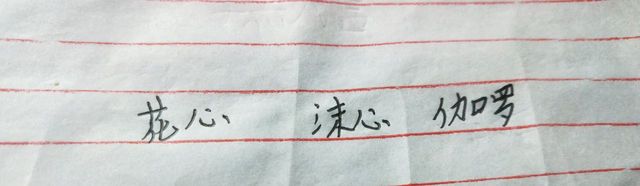 花心 沫心 伽罗